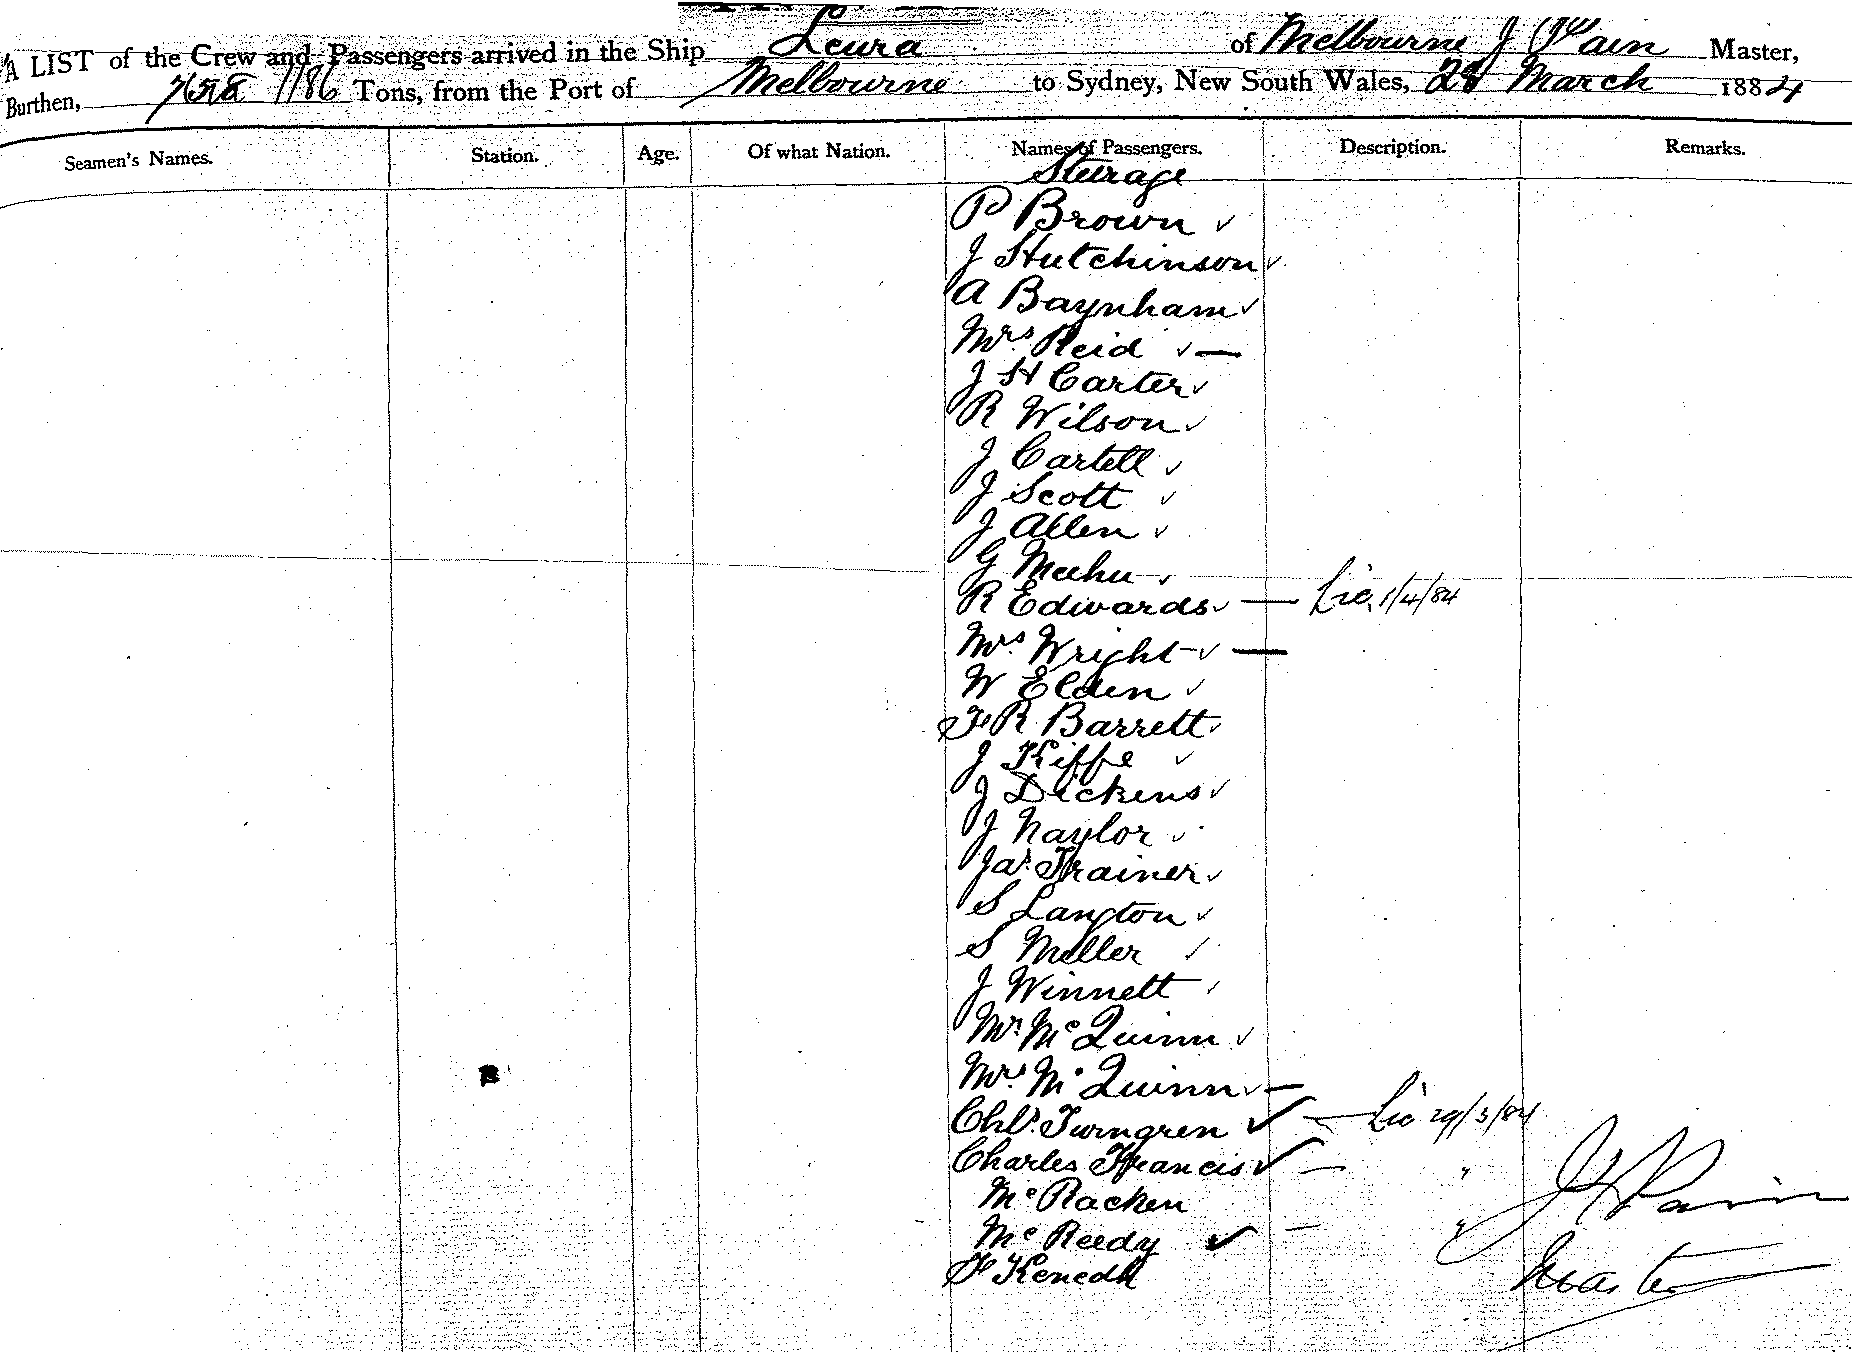 A LIST of the Crew and Passengers arrived in the Ship Leura of Melbourne J Pain Master,
Burthen, 1186 Tons, from the Port of Melbourne to Sydney, New South Wales, 28 March 1884
Seamen's Names. Station. Age. Of what Nation. Names of Passengers. Description. Remarks.
Steerage
P Brown ✓
J Hutchinson ✓
A Baynham ✓
Mrs Reid ✓ —
J H Carter ✓
R Wilson ✓
J Cartell ✓
J Scott ✓
J Allen ✓
G Meehu ✓
R Edwards ✓ — Lic 1/4/84
Mrs Wright ✓ —
W Elden ✓
F R Barrett ✓
J Kiffe ✓
J Dickens ✓
J Naylor ✓
Jas Trainer ✓
S Langton ✓
S Meller ✓
J Winnett ✓
Mr McQuinn ✓
Mrs McQuinn ✓ —
Chls. Turngren ✓ — Lic 29/3/84
Charles Francis ✓ — "
McRacken
McReedy ✓ — "
F Kenedh
J Pain
Master